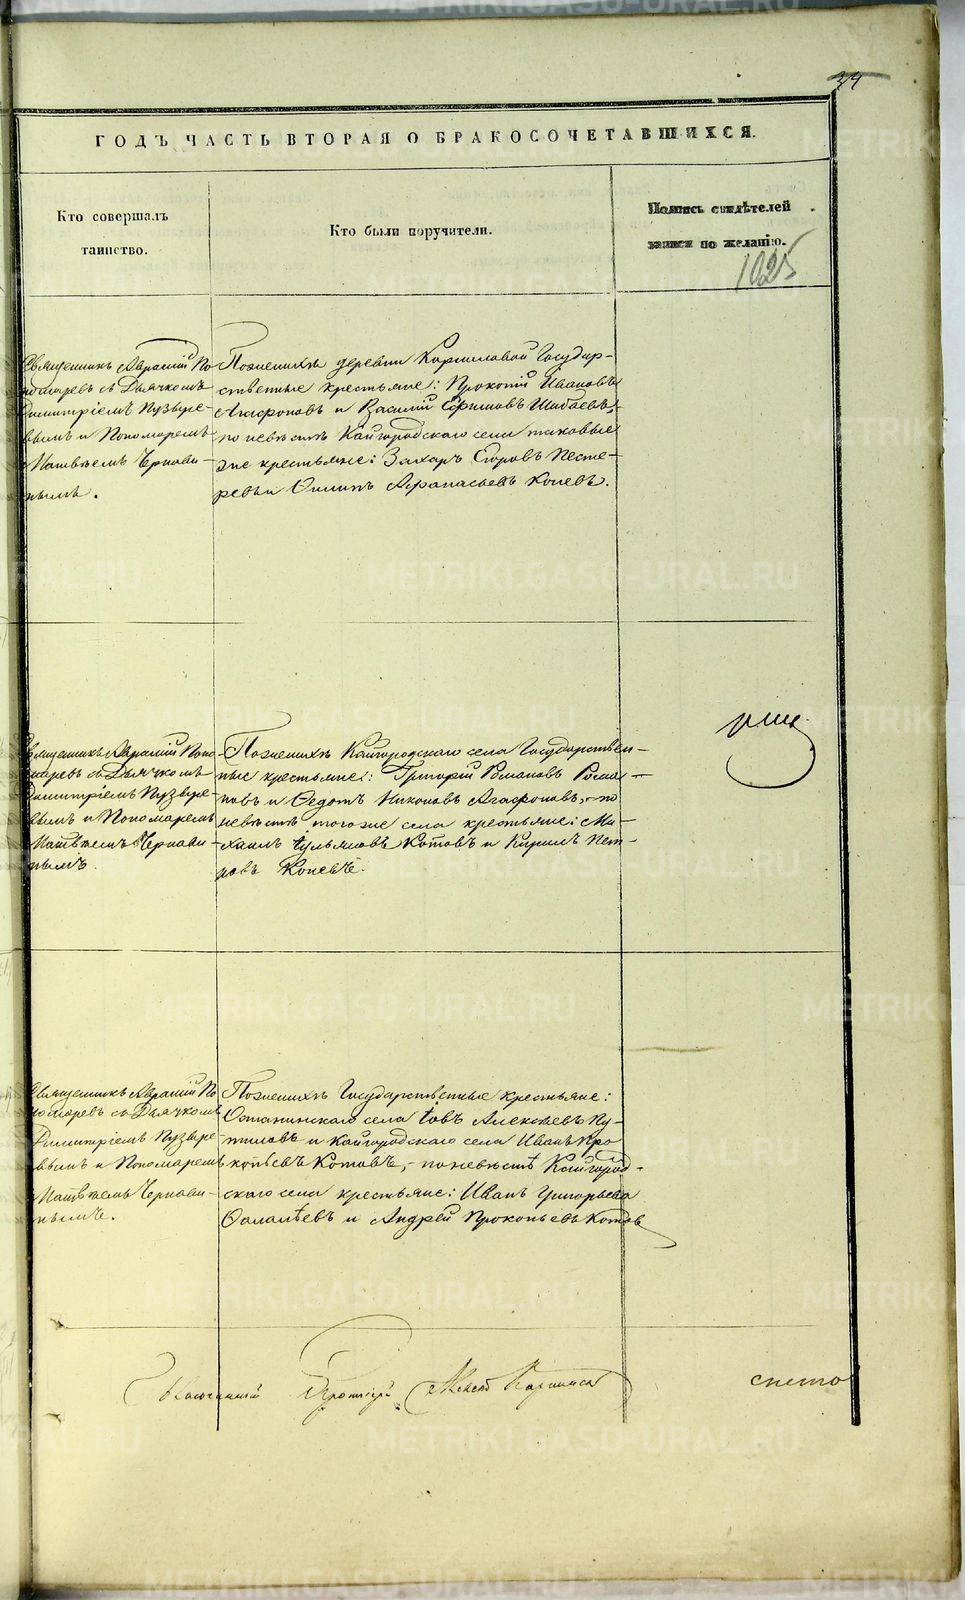 34
ГОДЪ ЧАСТЬ ВТОРАЯ О БРАКОСОЧЕТАВШИХСЯ.
Кто совершалъ
таинство.
Кто были поручители.
Подпись свидѣтелей
записи по желанію.
1025
Священникъ Авраамій По-
номаревъ съ Дьячкомъ
Димитріемъ Пузыре-
вымъ и Пономаремъ
Матвѣемъ Чернави-
нымъ.
По женихѣ деревни Корниловой Государ-
ственные крестьяне: Прокопій Ивановъ
Агафоновъ и Василій Ефимовъ Шабаевъ,-
по невѣстѣ Кайгородскаго села таковые
же крестьяне: Захаръ Егоровъ Песте-
ревъ и Филипъ Афанасьевъ Коневъ.
Священникъ Авраамій Поно-
маревъ съ Дьячкомъ
Димитріемъ Пузыре-
вымъ и Пономаремъ
Матвѣемъ Чернави-
нымъ.
По женихѣ Кайгородскаго села Государствен-
ные крестьяне: Григорій Романовъ Рома-
новъ и Ѳедотъ Никоновъ Агафоновъ,- по
невѣстѣ того же села крестьяне: Ми-
хаилъ Котовъ и Кирилъ Пет-
ровъ Коневъ.
Священникъ Авраамій По
номаревъ съ Дьячкомъ
Димитріемъ Пузыре
вымъ и Пономаремъ
Матвѣемъ Чернави-
нымъ.
По женихѣ Государственные крестьяне:
Останинскаго села Іовъ Алексѣевъ Пу-
тиловъ и Кайгородскаго села Иванъ Про
копьевъ Котовъ,- по невѣстѣ Кайгород-
скаго села крестьяне: Иванъ Григорьевъ
Фалалѣевъ и Андрей Прокопьевъ Котовъ
Благочинный Протоіерей
METRIKI.GASO-URAL.RU